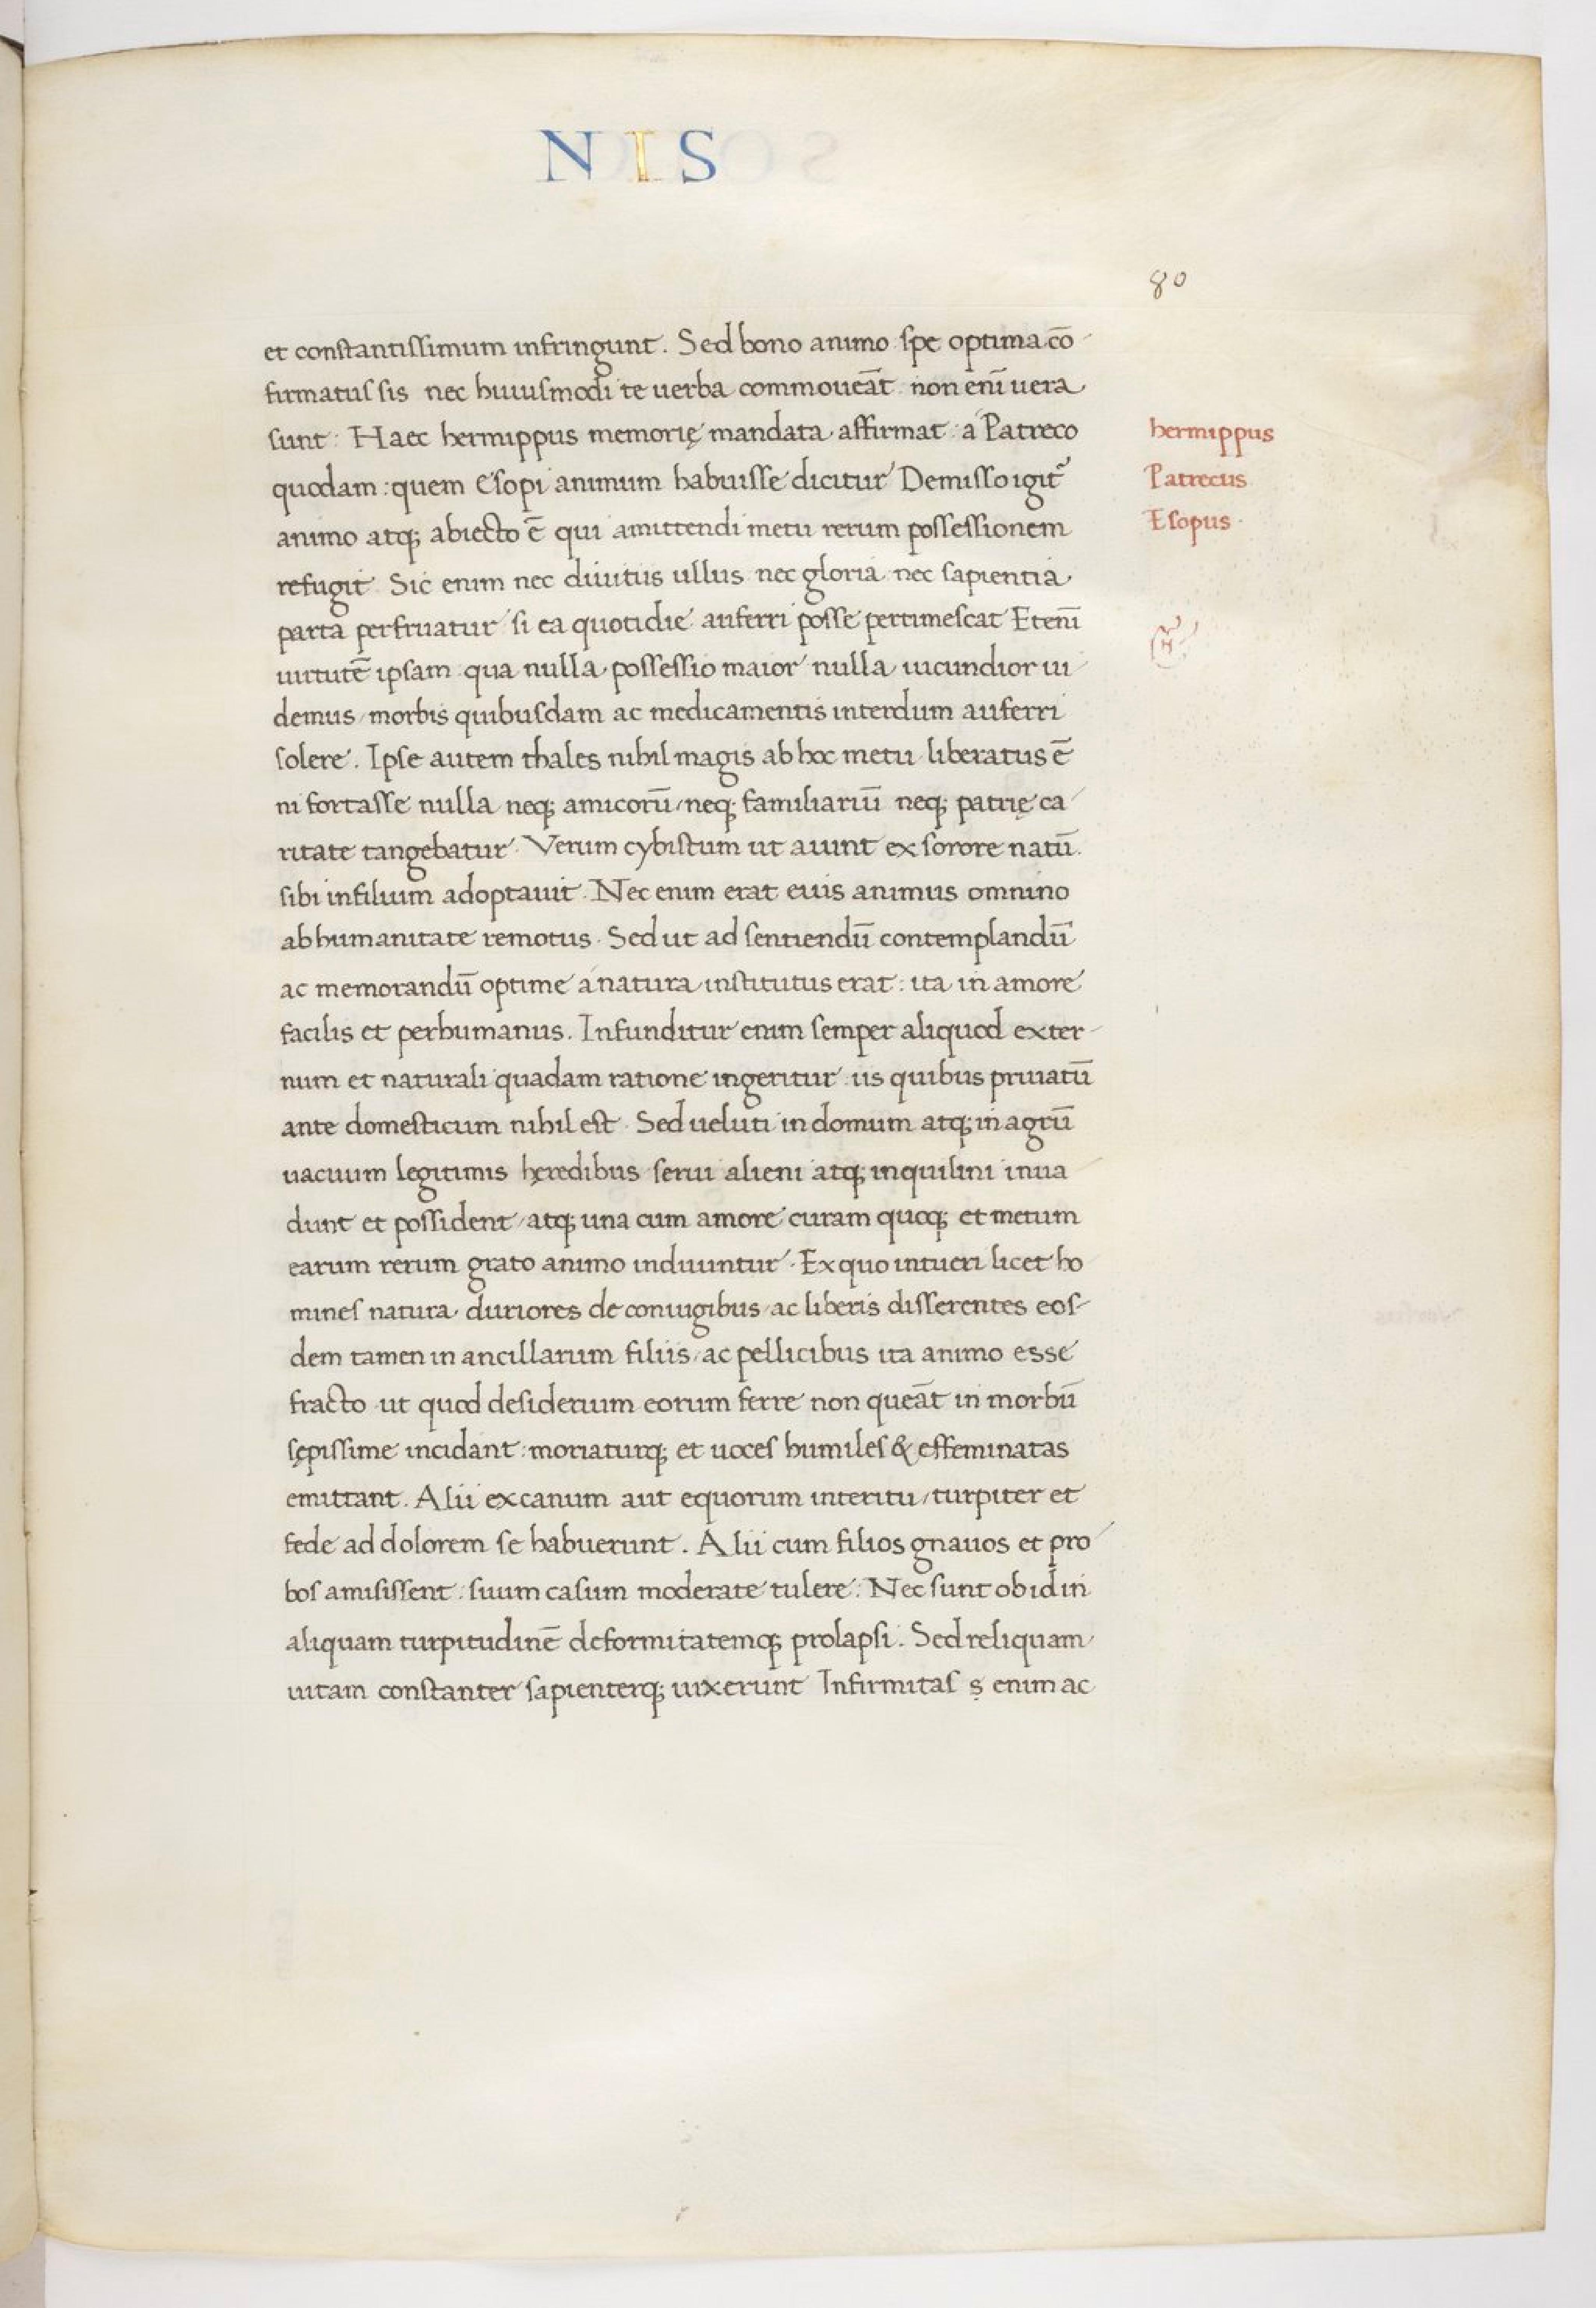 NIS
80
et constantissimum infringunt. Sed bono animo spe optima cō
firmatus sis nec huiusmodi te uerba commoueāt non enī uera
sunt: Haec hermippus memorię mandata affirmat: a Patreco
quodam: quem Esopi animum habuisse dicitur Demisso igit᷑
animo atq; abiecto ē qui amittendi metu rerum possessionem
refugit Sic enim nec diuitiis ullus nec gloria nec sapientia
parta perfruatur si ea quotidie auferri posse pertimescat Etenī
uirtutē ipsam qua nulla possessio maior nulla iucundior ui
demus/morbis quibusdam ac medicamentis interdum auferri
solere. Ipse autem thales nihil magis ab hoc metu liberatus ē
ni fortasse nulla neq; amicorū/neq; familiariū neq; patrię ca
ritate tangebatur. Verum cybistum ut aiunt ex sorore natū.
sibi in filium adoptauit. Nec enim erat euis animus omnino
ab humanitate remotus. Sed ut ad sentiendū contemplandū
ac memorandū optime a natura/institutus erat: ita in amore
facilis et perhumanus. Infunditur enim semper aliquod exter-
num et naturali quadam ratione ingeritur iis quibus priuatū
ante domesticum nihil est. Sed ueluti in domum atq; in agrū
uacuum legitimis hęredibus serui alieni atq; inquilini inua
dunt et possident/atq; una cum amore curam quoq; et metum
earum rerum grato animo induuntur. Ex quo intueri licet ho
mines natura duriores de coniugibus/ac liberis disserentes eos-
dem tamen in ancillarum filiis/ac pellicibus ita animo esse
fracto ut quod desiderium eorum ferre non queāt in morbū
sępissime incidant: moriaturq; et uoces humiles & effeminatas
emittant. Alii ex canum aut equorum interitu/turpiter et
fede ad dolorem se habuerunt. Alii cum filios gnauos et pro
bos amisissent: suum casum moderate tulere: Nec sunt ob id in
aliquam turpitudinē deformitatemq; prolapsi. Sed reliquam
uitam constanter sapienterq; uixerunt Infirmitas ṣ enim ac
hermippus
Patrecus
Esopus